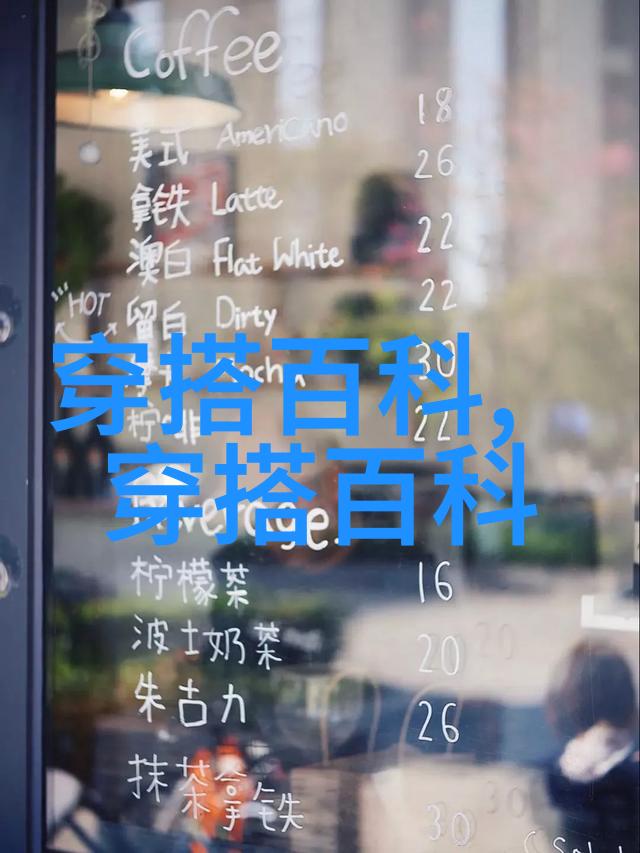 Coffee
美式 Americano 18
拿铁 Latte 26
澳白 Flat White 22
HOT 留白 Dirty 22
30
柠 啡 22
穿搭百科,
穿搭百科
柠檬茶 16
波士奶茶 20
朱古力 26
抹茶拿铁 30